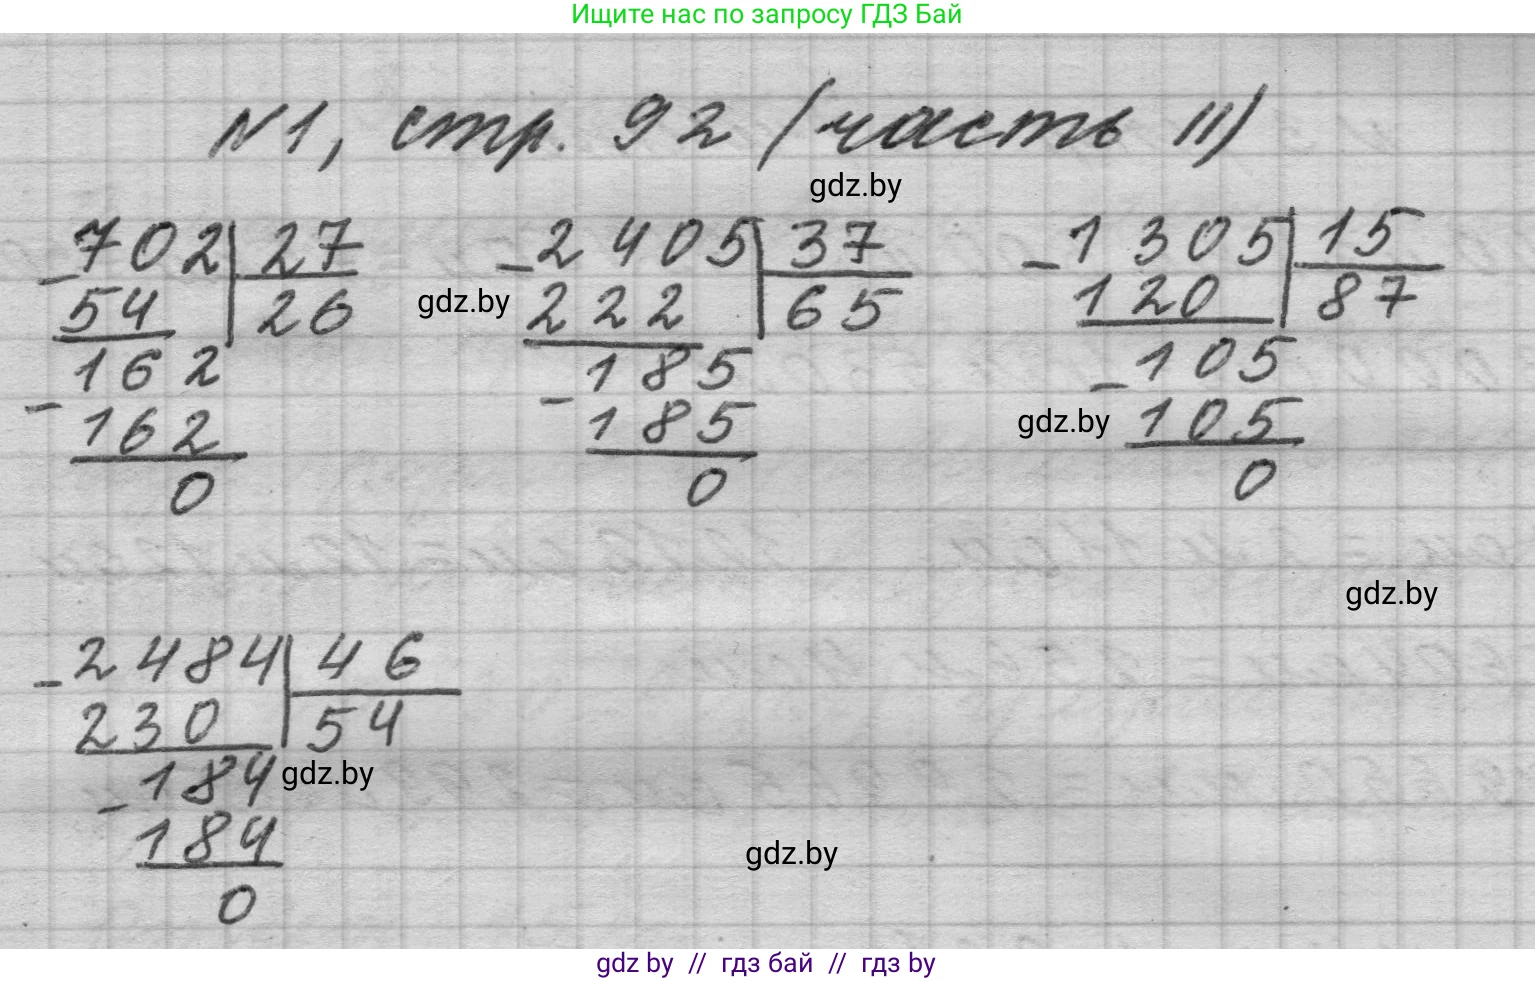 Ищите нас по запросу ГДЗ Бай
№1, стр. 92 (часть II)
gdz.by
702 27
- 54 26
162
- 162
0
- 2405 37
222 65
185
- 185
0
gdz.by
- 1305 15
120 87
105
- 105
0
gdz.by
gdz.by
- 2484 46
230 54
184
- 184
0
gdz.by
gdz.by
gdz by // гдз бай // гдз by